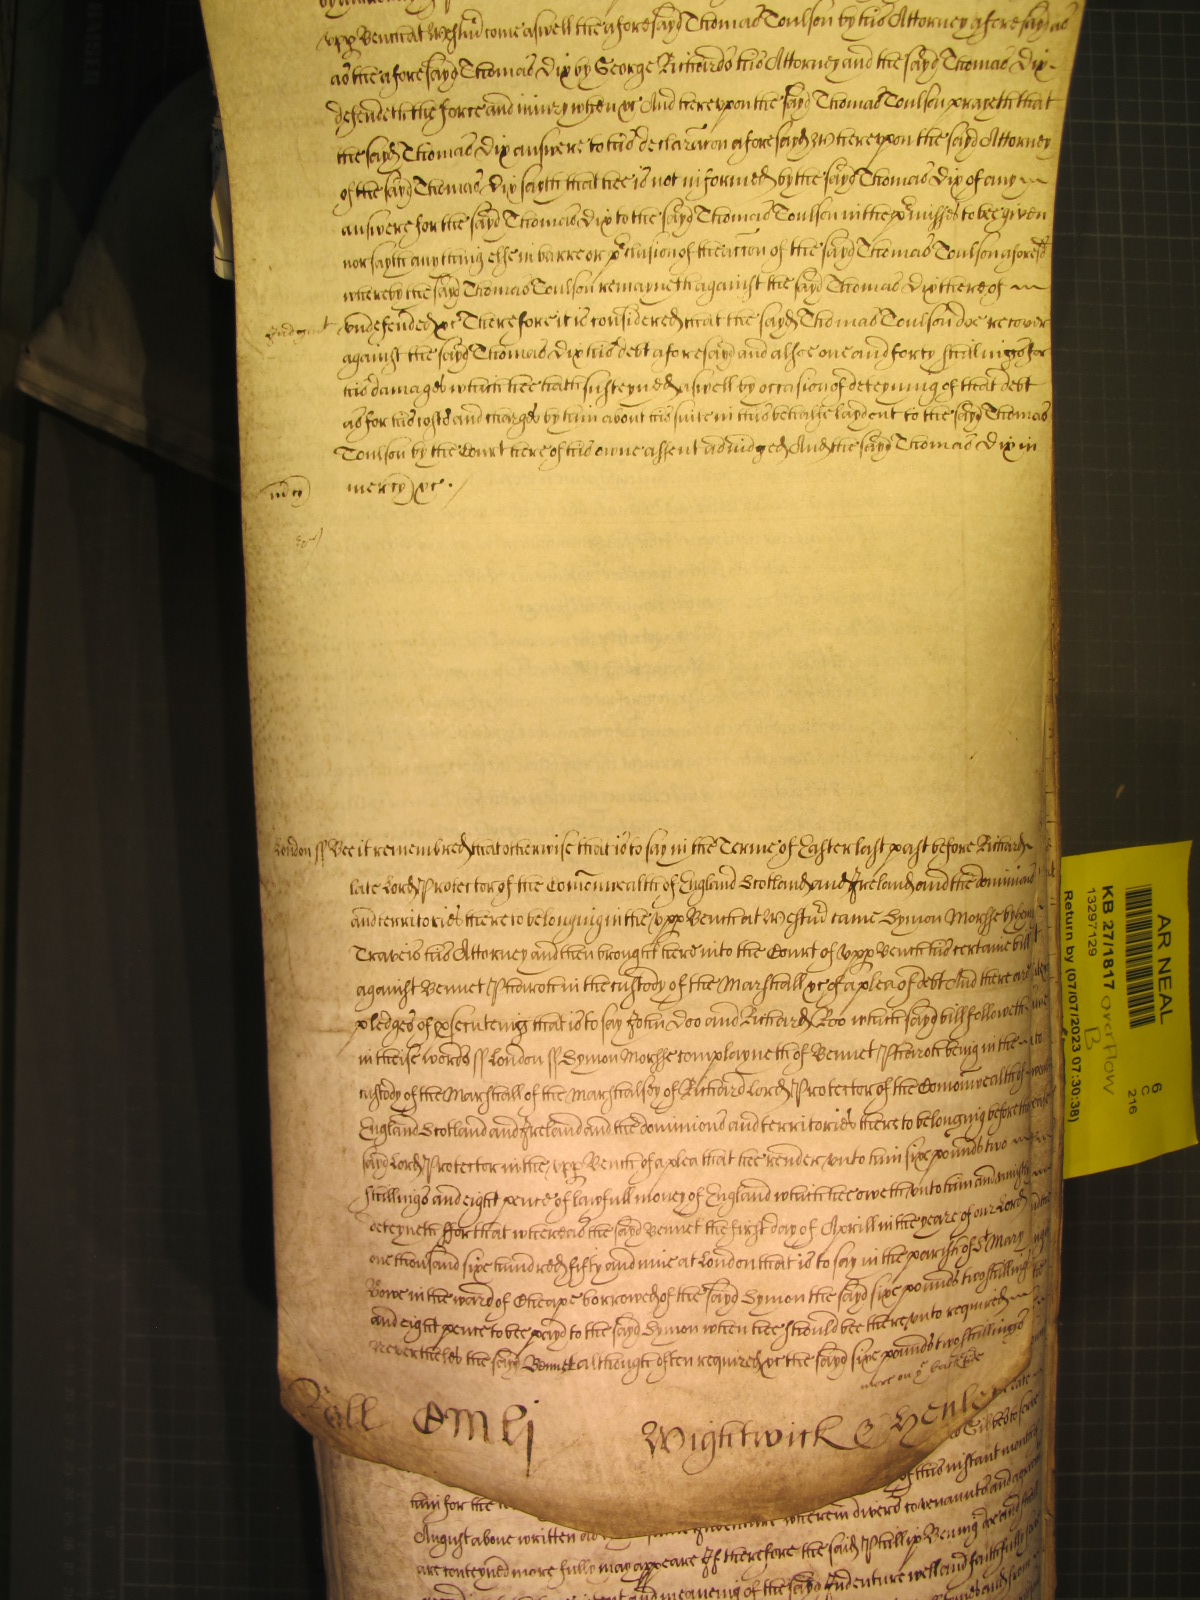 upp Bench at Westm̃ come aswell the aforesayd Thomas Toulson by his Attorney aforesayd as
as the aforesayd Thomas Dix by George Richards his Attorney and the sayd Thomas Dix
defendeth the force and iniury when &c And hereupon the sayd Thomas Toulson prayeth that
the sayd Thomas Dix answere to his declaracon aforesayd Whereupon the sayd Attorney
of the sayd Thomas Dix sayth that hee is not informed by the sayd Thomas Dix of any
answere for the sayd Thomas Dix to the sayd Thomas Toulson in the pʳmisses to bee given
nor sayth any thing else in barre or pʳclusion of the accon of the sayd Thomas Toulson aforesd
whereby the sayd Thomas Toulson remayneth against the sayd Thomas Dix thereof
Judgmt vndefended &c Therefore it is considered that the sayd Thomas Toulson doe recover
against the sayd Thomas Dix his debt aforesayd and alsoe one and forty shillings for
his damages which hee hath susteyned aswell by occasion of deteyning of that debt
as for his costs and charges by him about his suite in this behalfe layd out to the sayd Thomas
Toulson by the Court here of his owne assent adiudged And the sayd Thomas Dix in
mercy &c.
mcy
London ss Bee it remembred that otherwise that is to say in the Terme of Easter last past before Richard
late Lord Protector of the Comonwealth of England Scotland and Ireland and the dominions
and territories thereto belonging in the upp Bench at Westm̃ came Symon Morsse by
Traveis his Attorney and then brought here into the Court of upp Bench his certaine bill
against Bennet in the custody of the Marshall &c of a plea of debt And there are
pledges of psecuteing that is to say John Doo and Richard Roo which sayd bill followeth
in theise words ss London ss Symon Morsse complayneth of Bennet being in the
custody of the Marshall of the Marshalsey of Richard Lord Protector of the Comonwealth of
England Scotland and Ireland and the dominions and territories thereto belonging before the
sayd Lord Protector in the upp Bench of a plea that hee render vnto him sixe pounds two
shillings and eight pence of lawfull money of England which hee oweth vnto him and uniustly
deteyneth ffor that whereas the sayd Bennet the first day of Aprill in the yeare of our Lord
one thousand sixe hundred fifty and nine at London that is to say in the parish of St Mary
Bowe in the ward of Cheape borrowed of the sayd Symon the sayd sixe pounds two shillings
and eight pence to bee payd to the sayd Symon when hee should bee thereunto required
Neverthelesse the sayd Bennet although often required &c the sayd sixe pounds two shillings
more on ye backside
Roll Wightwick &
of this instant month
him for the
August above written wherein divers covenants and
are conteyned more fully may appeare If therefore the said Phillip
and meaneing of the sayd Indenture well and faithfully
AR NEAL
KB 27/1817 overflow
B
13297129
Return by (07/07/2023 07:30:38)
6
C
216